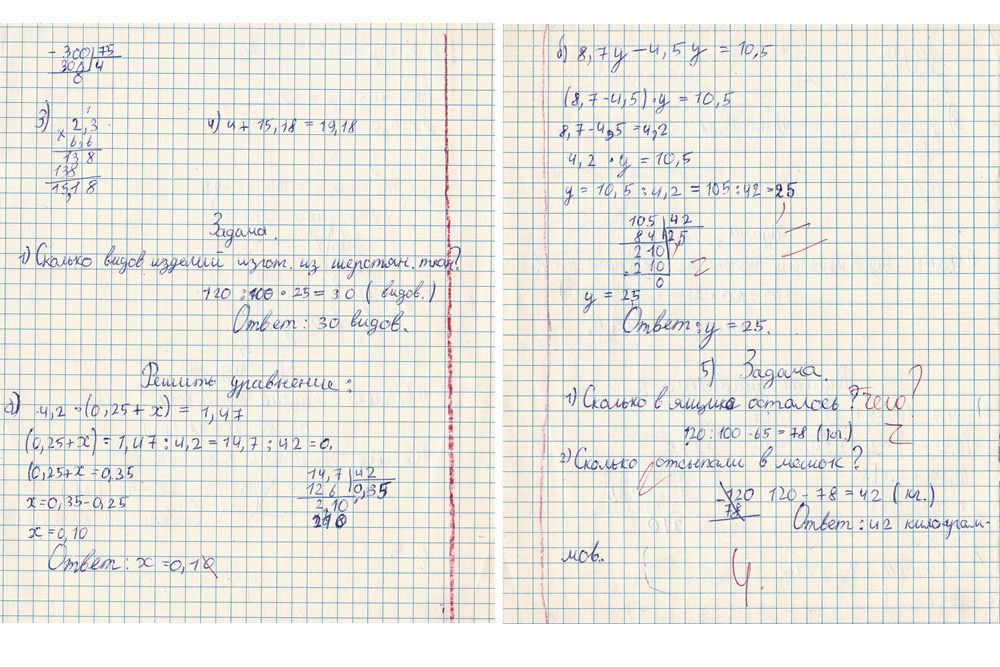 - 300 | 75
300 | 4
0
3) 2,3
× 6,6
138
138
15,18
4) 4 + 15,18 = 19,18
Задача.
1) Сколько видов изделий изгот. из шерстян. ткан?
120 : 100 • 25 = 30 ( видов.)
Ответ: 30 видов.
Решить уравнение:
а) 4,2 • (0,25 + x) = 1,47
(0,25+x) = 1,47 : 4,2 = 14,7 : 42 = 0,
(0,25+x = 0,35
x = 0,35 - 0,25
x = 0,10
Ответ: x = 0,10
14,7 | 42
12 6 | 0,35
2,10
210
б) 8,7y - 4,5y = 10,5
(8,7 - 4,5) • y = 10,5
8,7 - 4,5 = 4,2
4,2 • y = 10,5
y = 10,5 : 4,2 = 105 : 42 = 25
105 | 42
84 | 2,5
210
- 210
0
y = 25
Ответ: y = 25.
5) Задача.
1) Сколько в ящике осталось? Чего?
120 : 100 • 65 = 78 (кг.)
2) Сколько отсыпали в мешок?
- 120
78
120 - 78 = 42 ( кг.)
Ответ: 42 килограм-
мов.
4.